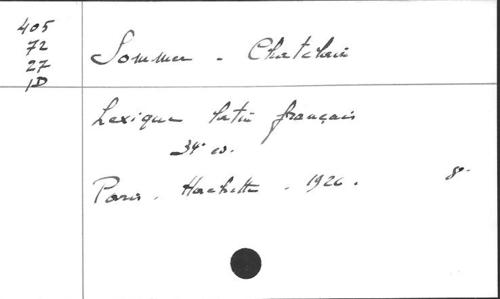 405
72
27
1D
Sommer - Chatelain
Lexique latin français
34e éd.
Paris. Hachette. 1926.
8°